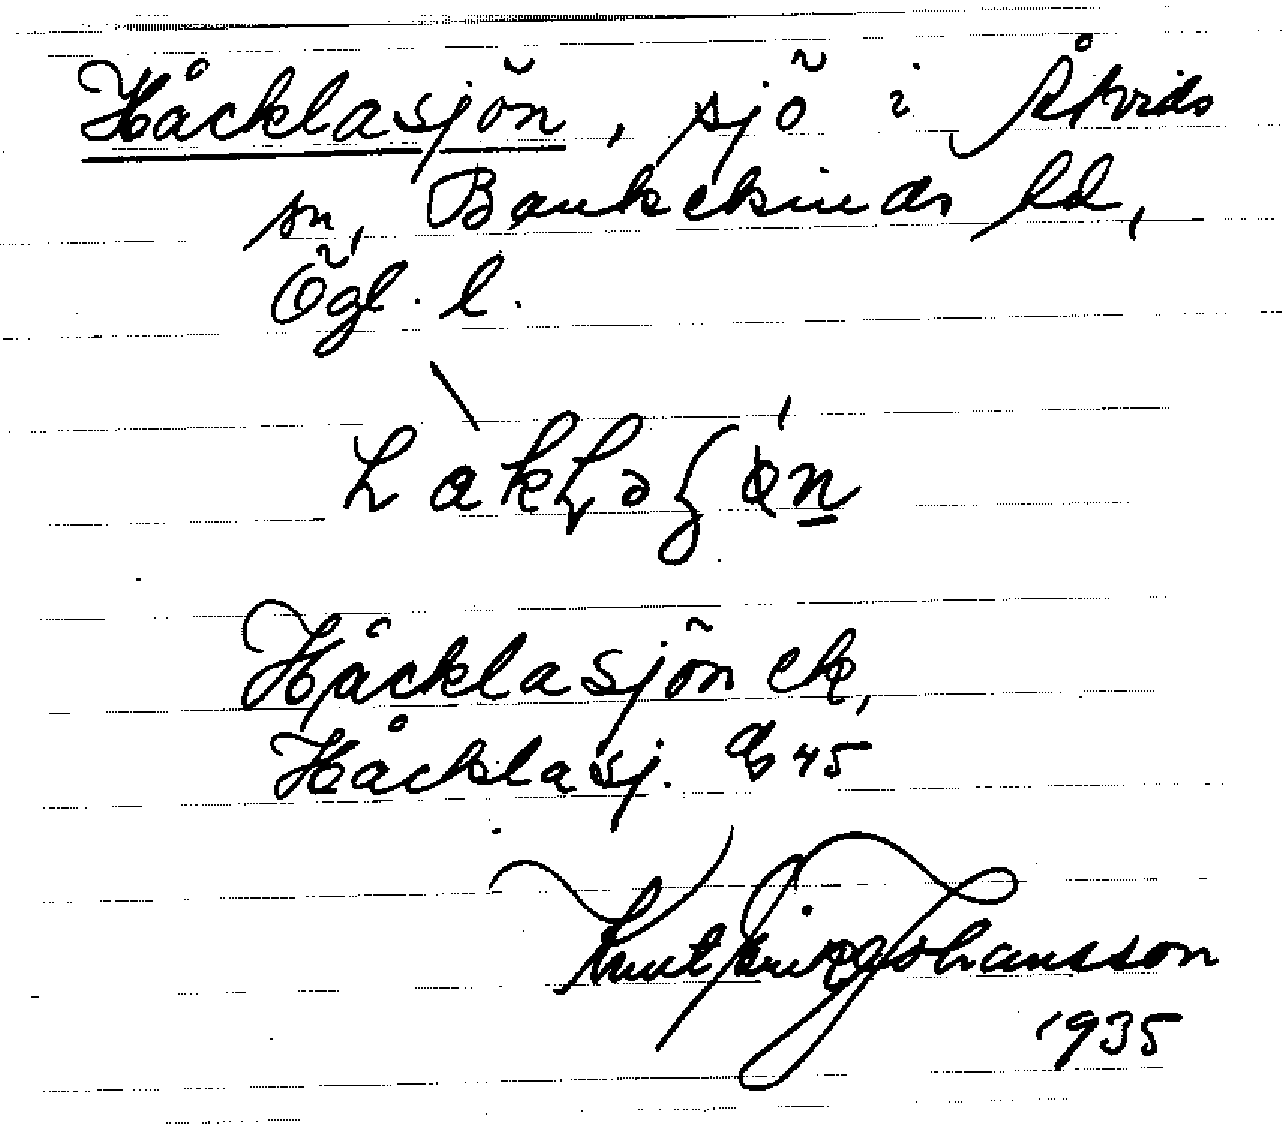 Håcklasjön, sjö i Åtvids
sn, Bankekinds hd,
Ögl. l.
Håcklasjön ek,
Håcklasj. GS 45
Knut Eric Johansson
1935